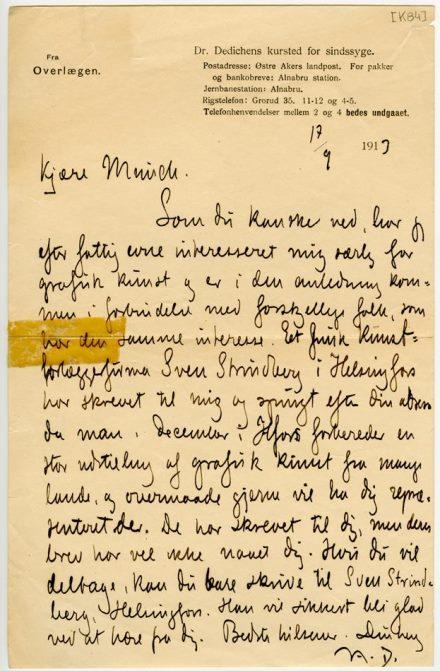 [K84]
Fra
Overlægen.
Dr. Dedichens kursted for sindssyge.
Postadresse: Østre Akers landpost. For pakker
og bankobreve: Alnabru station.
Jernbanestation: Alnabru.
Rigstelefon: Grorud 35. 11-12 og 4-5.
Telefonhenvendelser mellem 2 og 4 bedes undgaaet.
17/9 1913
Kjære Munch.
Som du kanske ved, har jeg
efter fattig evne interesseret mig særlig for
grafisk kunst og er i den anledning kom-
men i forbindelse med forskjellige folk, som
har den samme interesse. Et finsk kunst-
forlæggerfirma Sven Strindberg i Helsingfors
har skrevet til mig og spurgt efter din adresse
da man i December i Hfors forbereder en
stor udstilling af grafisk kunst fra mange
lande, og overmaade gjerne vil ha dig repræ-
senteret der. De har skrevet til dig, men deres
brev har vel ikke naaet dig. Hvis du vil
deltage, kan du bare skrive til Sven Strind-
berg, Helsingfors. Han vil sikkert bli glad
ved at høre fra dig. Bedste hilsener.
A. D.